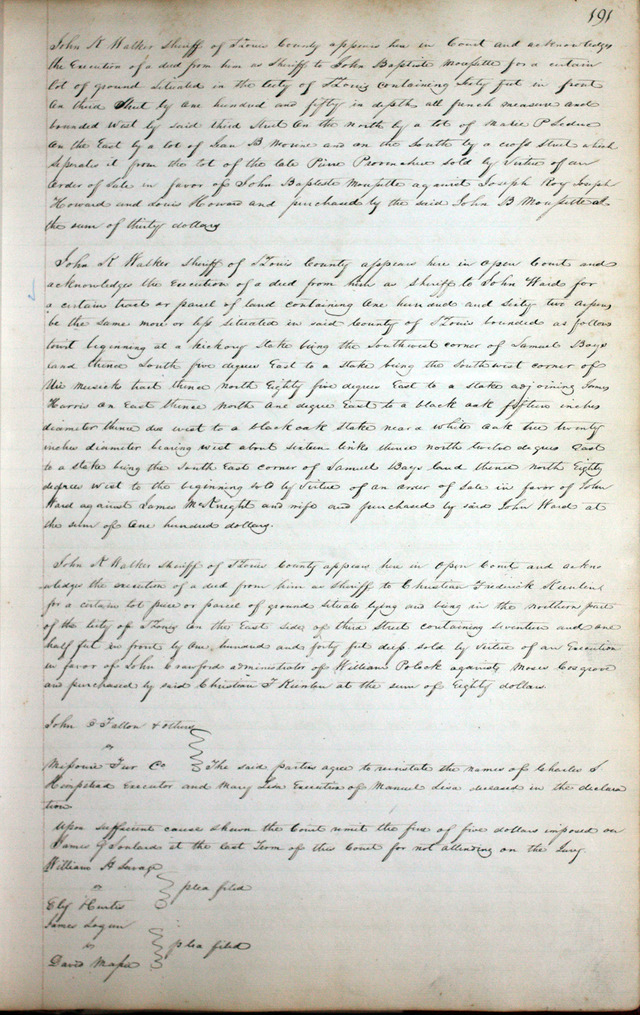 191
John K Walker Sheriff of St Louis County appears here in Court and acknowledges
the Execution of a deed from him as Sheriff to John Baptiste for a certain
lot of ground situated in the City of St Louis containing Sixty feet in front
on third Street by one hundred and fifty in depth all french measure and
bounded West by said third Street on the north by a lot of Marie P Leduc
on the East by a lot of Jean B and on the South by a cross Street which
seperates it from the lot of the late Pierre Provenchere sold by Virtue of an
order of Sale in favor of John Baptiste against Joseph Roy Joseph
Howard and Louis Howard and purchased by the said John B at
the sum of thirty dollars
John K Walker Sheriff of St Louis County appears here in open Court and
acknowledges the Execution of a deed from him as Sheriff to John Ward for
a certain tract or parcel of land containing one hundred and Sixty two arpens
be the same more or less situated in said County of St Louis bounded as follows
towit beginning at a hickory Stake being the Southwest corner of Samuel Bays
land thence South five degrees East to a Stake being the Southwest corner of
Uri Musicks tract thence North Eighty five degrees East to a stake adjoining James
Harris on East thence North one degree East to a black oak fifteen inches
diameter thence due west to a black oak Stake near a white oak tree twenty
inches diameter bearing west about sixteen links thence north twelve degrees East
to a stake being the South East corner of Samuel Bays land thence North Eighty
degrees West to the beginning sold by Virtue of an order of Sale in favor of John
Ward against James McKnight and wife and purchased by said John Ward at
the sum of one hundred dollars.
John K Walker Sheriff of St Louis County appears here in open Court and ackno
wledges the execution of a deed from him as Sheriff to Christian Frederick
for a certain lot piece or parcel of ground situate lying and being in the northern part
of the City of St Louis on the East side of third Street containing seventeen and one
half feet in front by one hundred and forty feet deep sold by virtue of an Execution
in favor of John Crawford administrator of William Polock against Moses Cosgrove
and purchased by said Christian F at the sum of Eighty dollars
John & others
vs
Missouri Fur Co } The said parties agree to reinstate the names of Charles S
Hempstead Executor and Mary Lisa Executrix of Manuel Lisa deceased in the declara
tion
Upon sufficient cause shewn the Court remit the fine of five dollars imposed on
James G Soulard at the last Term of this Court for not attending on the Jury
William H Savage
vs } plea filed
Ely
James Logan
vs } plea filed
David